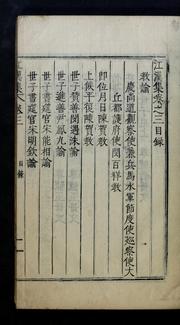 江漢集卷之三目錄
教諭
慶尚道觀察使兼兵馬水軍節度使巡察使大
丘都護府使閔百祥教
即位月日陳賀教
上候平復陳賀教
世子贊善閔遇洙諭
世子進善尹鳳九諭
世子書筵官宋能相諭
世子書筵官宋明欽諭
江漢集 卷三 目錄 一